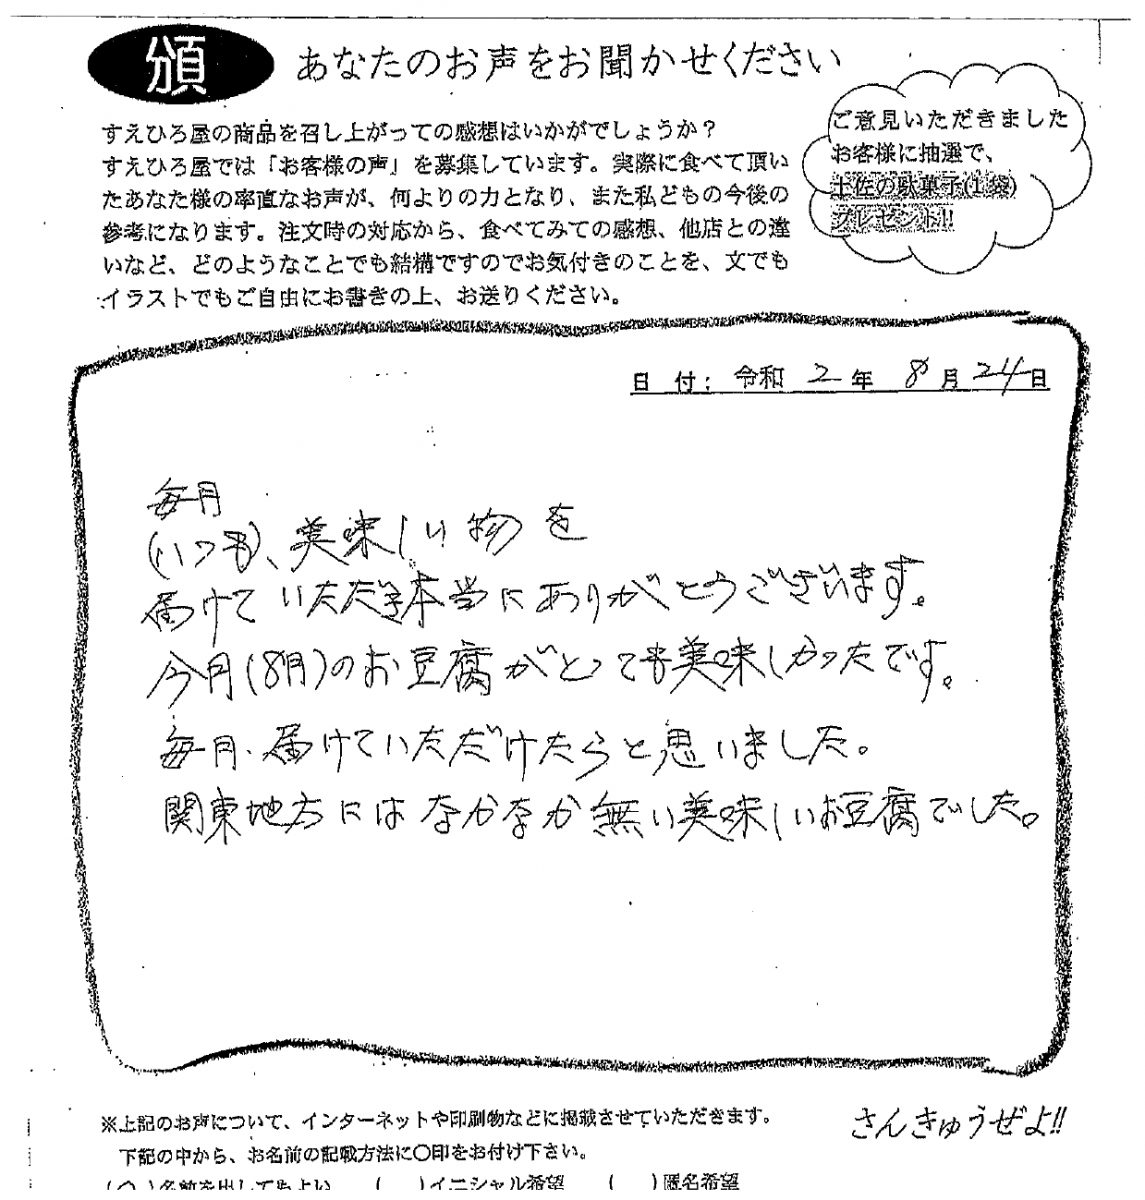 頒 あなたのお声をお聞かせください
すえひろ屋の商品を召し上がっての感想はいかがでしょうか？
すえひろ屋では「お客様の声」を募集しています。実際に食べて頂い
たあなた様の率直なお声が、何よりの力となり、また私どもの今後の
参考になります。注文時の対応から、食べてみての感想、他店との違
いなど、どのようなことでも結構ですのでお気付きのことを、文でも
イラストでもご自由にお書きの上、お送りください。
ご意見いただきました
お客様に抽選で、
土佐の駄菓子(1袋)
プレゼント!!
日 付：令和 2 年 8 月 24 日
毎月
(いつも)、美味しい物を
届けていただき本当にありがとうございます。
今月(8月)のお豆腐がとっても美味しかったです。
毎月、届けていただけたらと思いました。
関東地方にはなかなか無い美味しいお豆腐でした。
※上記のお声について、インターネットや印刷物などに掲載させていただきます。
下記の中から、お名前の記載方法に〇印をお付け下さい。
さんきゅうぜよ!!
(〇)名前を出してもよい ( )イニシャル希望 ( )匿名希望